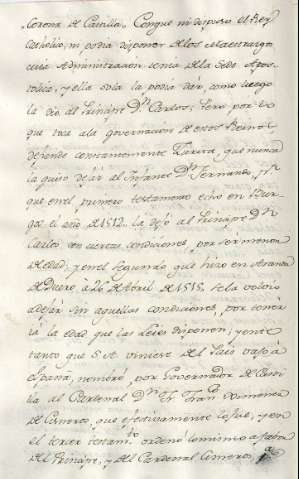 Corona de Castilla. Conque ni dispuso el Rey
Catholico, ni podia disponer de los Maestrazgos
cuia Administracion tenia de la Sede Apos
tolica, y ella sola la podia dar, como luego
la dio al Principe Dn. Carlos; Pero por lo
que toca a la governacion de estos Reinos,
defiende constantemente Zurita, que nunca
la quiso dejar al Infante Dn. Fernando, pr.
que en el primer testamento echo en Bur-
gos el año de 1512. la dejó al Principe Dn.
Carlos con ciertas condiciones, por ser menor
de edad; y en el Segundo que hizo en Aranda
de Duero, a 26 de Abril de 1515. se la volvio
a dejar sin aquellas condiciones, por tener
ia la edad que las Leies disponen; y entre
tanto que S. A. viniese del Pais vaso a
España, nombró por Governador de Casti
lla al Cardenal Dn. Fr. Franco. Ximenez
de Cisneros, que efectivamente lo fue, y en
el tercer testamto. ordenó lo mismo a favor
del Principe, y del Cardenal Cisneros